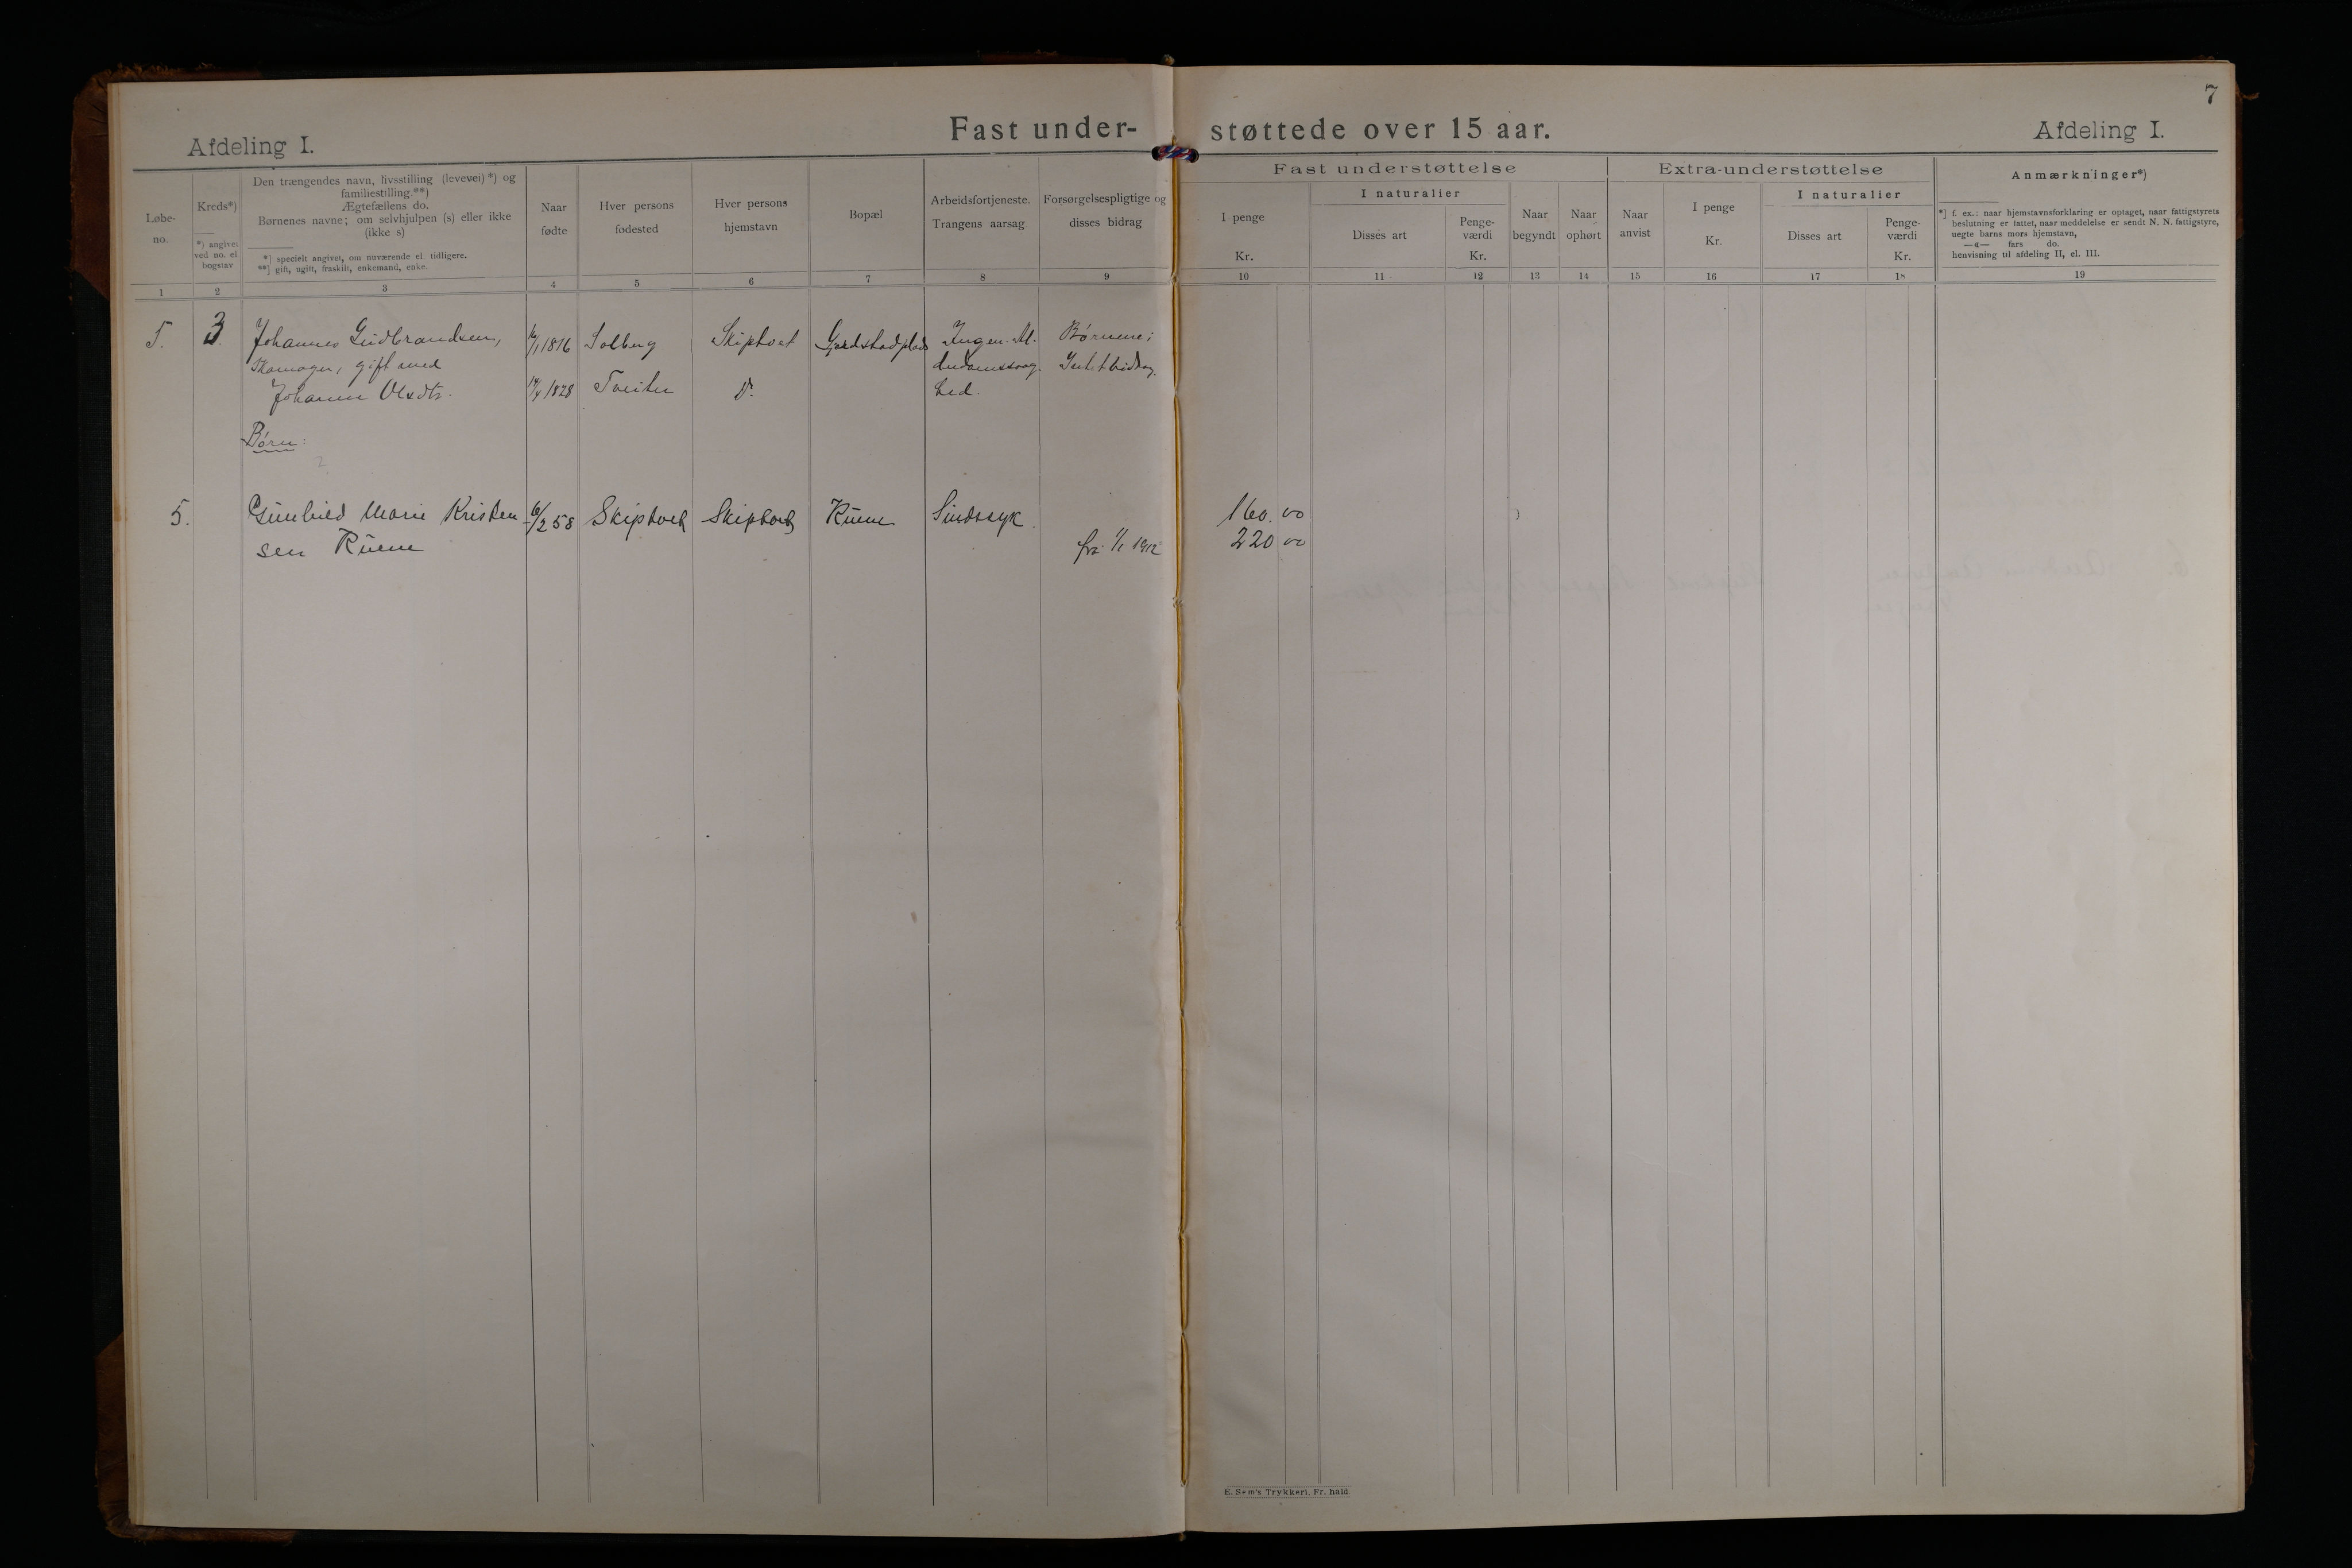 7
Afdeling I.
Fast under- støttede over 15 aar.
Afdeling I.
Løbe-
no.
Kreds*)
*) angivet
ved no. el
bogstav
Den trængendes navn, livsstilling (levevei)*) og
familiestilling **)
Ægtefællens do.
Børnenes navne; om selvhjulpen (s) eller ikke
(ikke s)
*) specielt angivet, om nuværende el. tidligere.
**) gift, ugift, fraskilt, enkemand, enke.
Naar
fødte
Hver persons
fødested
Hver persons
hjemstavn
Bopæl
Arbeidsfortjeneste.
Trangens aarsag
Forsørgelsespligtige og
disses bidrag
Fast understøttelse
I penge
Kr.
I naturalier
Disses art
Penge-
værdi
Kr.
Naar
begyndt
Naar
ophørt
Extra-understøttelse
Naar
anvist
I penge
Kr.
I naturalier
Disses art
Penge-
værdi
Kr.
Anmærkninger*)
*] f. ex.: naar hjemstavnsforklaring er optaget, naar fattigstyrets
beslutning er fattet, naar meddelelse er sendt N. N. fattigstyre,
uegte barns mors hjemstavn,
—«— fars do.
henvisning til afdeling II, el. III.
1 2 3 4 5 6 7 8 9 10 11 12 13 14 15 16 17 18 19
5. 3. Johannes Gudbrandsen, 1816 Solberg Skiptvet Ingen. Al- Børnene;
Skomager, gift med derdomssvag- Intet bidrag.
Johanne Olsdtr. 1828 Tveiter Do hed.
Børn:
5. Gunhild Marie Kristen- 6/2 58 Skiptvet Skiptvet Ruene Sindssyk. 160.00
sen Ruene fra 1/1 1912 220 00
E. Sem's Trykkeri, Fr. hald.